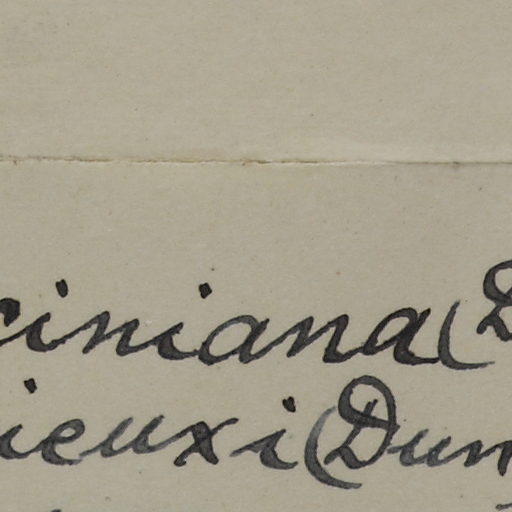 ciniana (D
ieuxi (Dun